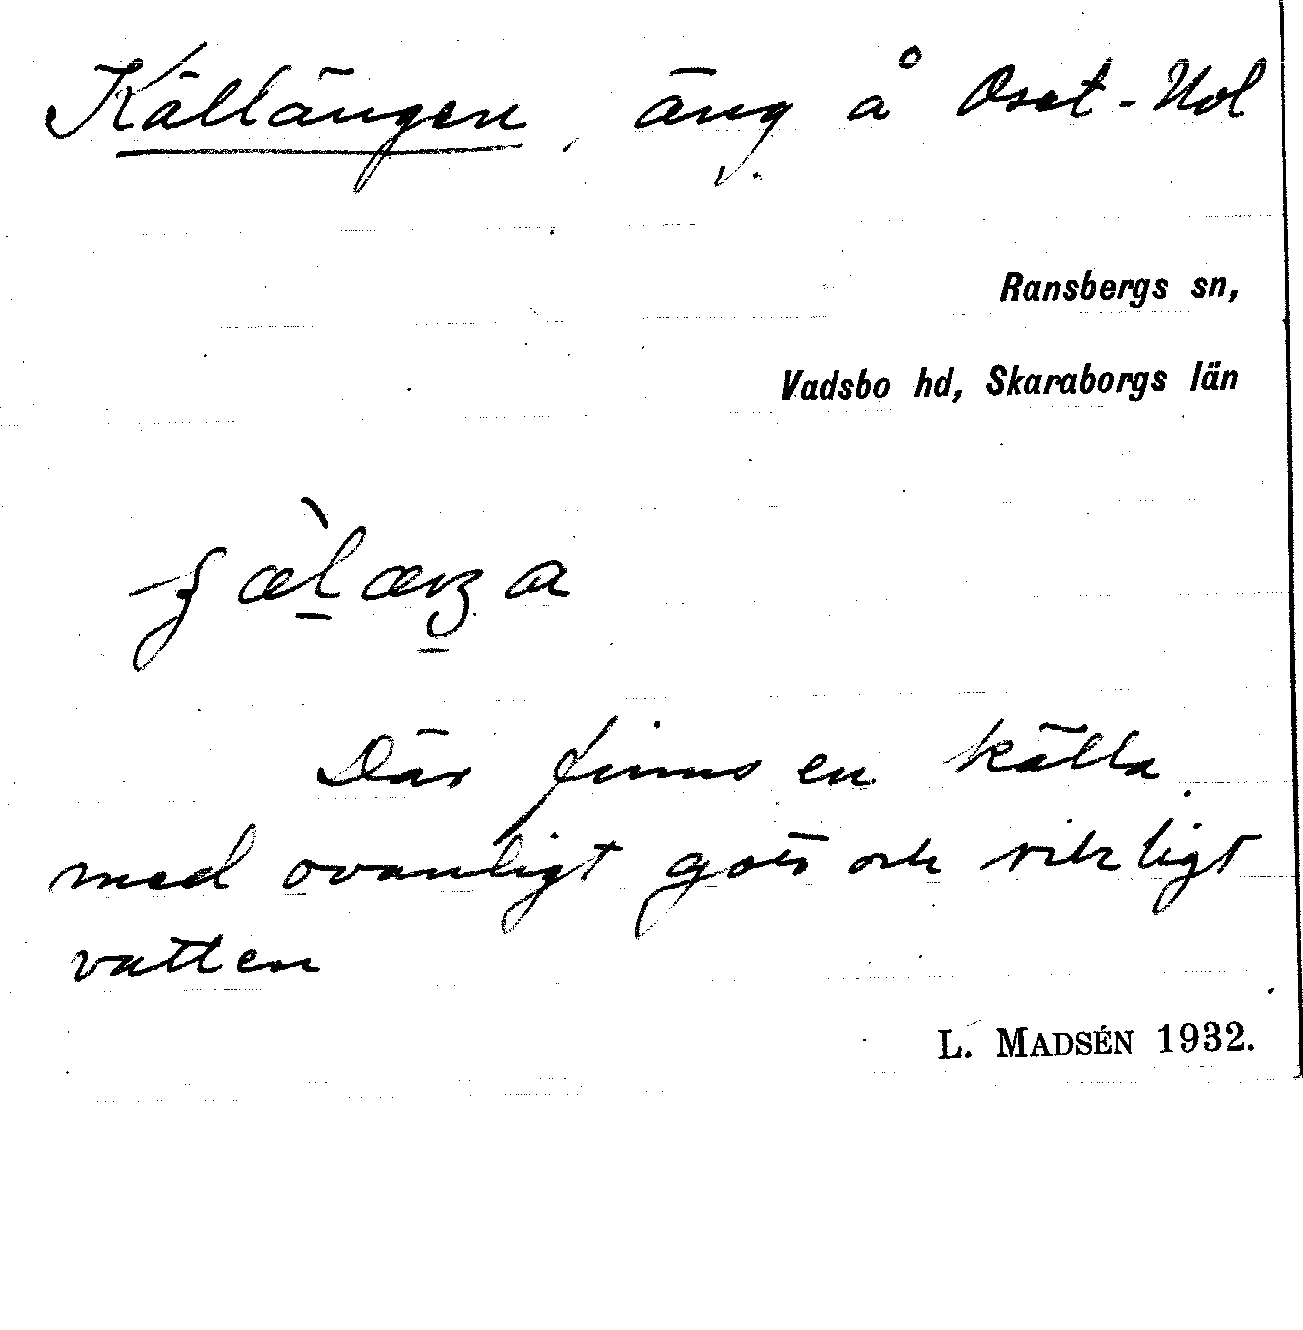 Källängen, äng å Oset-Nol
Ransbergs sn,
Vadsbo hd, Skaraborgs län
Där finns en källa
med ovanligt gott och rikligt
vatten
L. MADSÉN 1932.